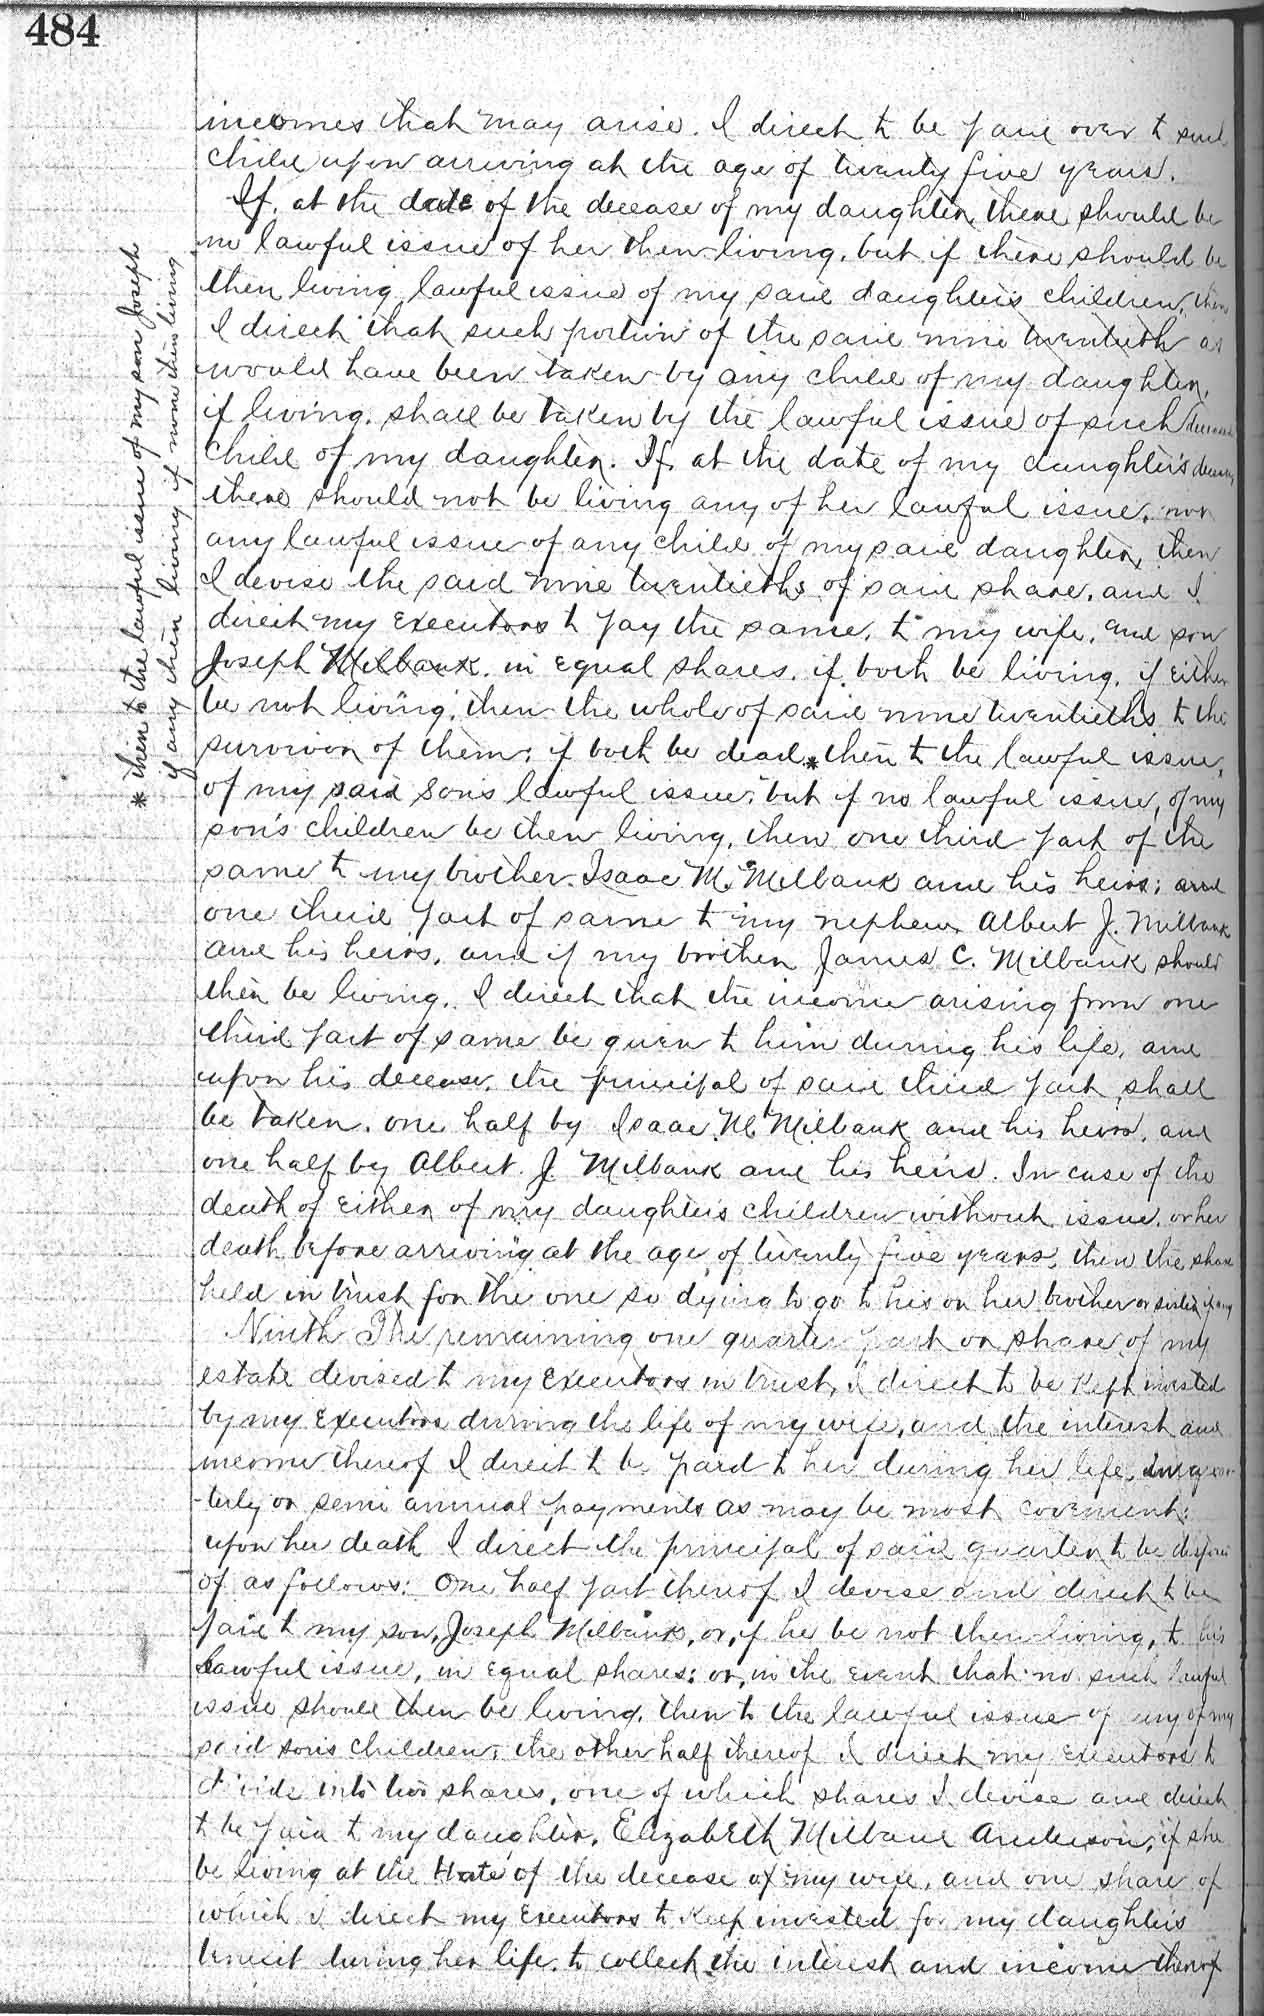 484
incomes that may arise. I direct to be paid over to such
child upon arriving at the age of twenty five years.
If, at the date of the decease of my daughter, there should be
no lawful issue of her then living, but if there should be
then living lawful issue of my said daughter's children, then
I direct that such portion of the said nine twentieth as
would have been taken by any child of my daughter,
if living, shall be taken by the lawful issue of such deceased
child of my daughter. If, at the date of my daughter's decease,
there should not be living any of her lawful issue, nor
any lawful issue of any child of my said daughter, then
I devise the said nine twentieths of said share, and I
direct my executors to pay the same, to my wife, and son
Joseph Milbank, in equal shares, if both be living, if either
be not living, then the whole of said nine twentieths to the
survivor of them; if both be dead * then to the lawful issue,
of my said son's lawful issue; but if no lawful issue, of my
son's children be then living, then one third part of the
same to my brother Isaac M. Milbank and his heirs; and
one third part of same to my nephew Albert J. Milbank
and his heirs, and if my brother James C. Milbank should
then be living, I direct that the income arising from one
third part of same be given to him during his life, and
upon his decease, the principal of said third part, shall
be taken, one half by Isaac M. Milbank and his heirs, and
one half by Albert J. Milbank and his heirs. In case of the
death of either of my daughters children without issue, or her
death before arriving at the age of twenty five years, then the share
held in trust for the one so dying to go to his or her brother or sister if any
Ninth The remaining one quarter part or share of my
estate devised to my Executors in trust, I direct to be kept invested
by my Executors during the life of my wife, and the interest and
income thereof I direct to be paid to her during her life, in quar-
-terly or semi annual payments as may be most covenient;
upon her death I direct the principal of said quarter to be disposed
of as follows: One half part thereof I devise and direct to be
paid to my son, Joseph Milbank, or, if he be not then living, to his
lawful issue, in equal shares; or, in the event that no such lawful
issue should then be living, then to the lawful issue of any of my
said son's children, the other half thereof I direct my executors to
divide into two shares, one of which shares I devise and direct
to be paid to my daughter, Elizabeth Milbank Anderson, if she
be living at the date of the decease of my wife, and one share of
which I direct my Executors to keep invested for my daughter's
benefit during her life, to collect the interest and income thereof
* then to the lawful issue of my son Joseph
if any then living if none then living